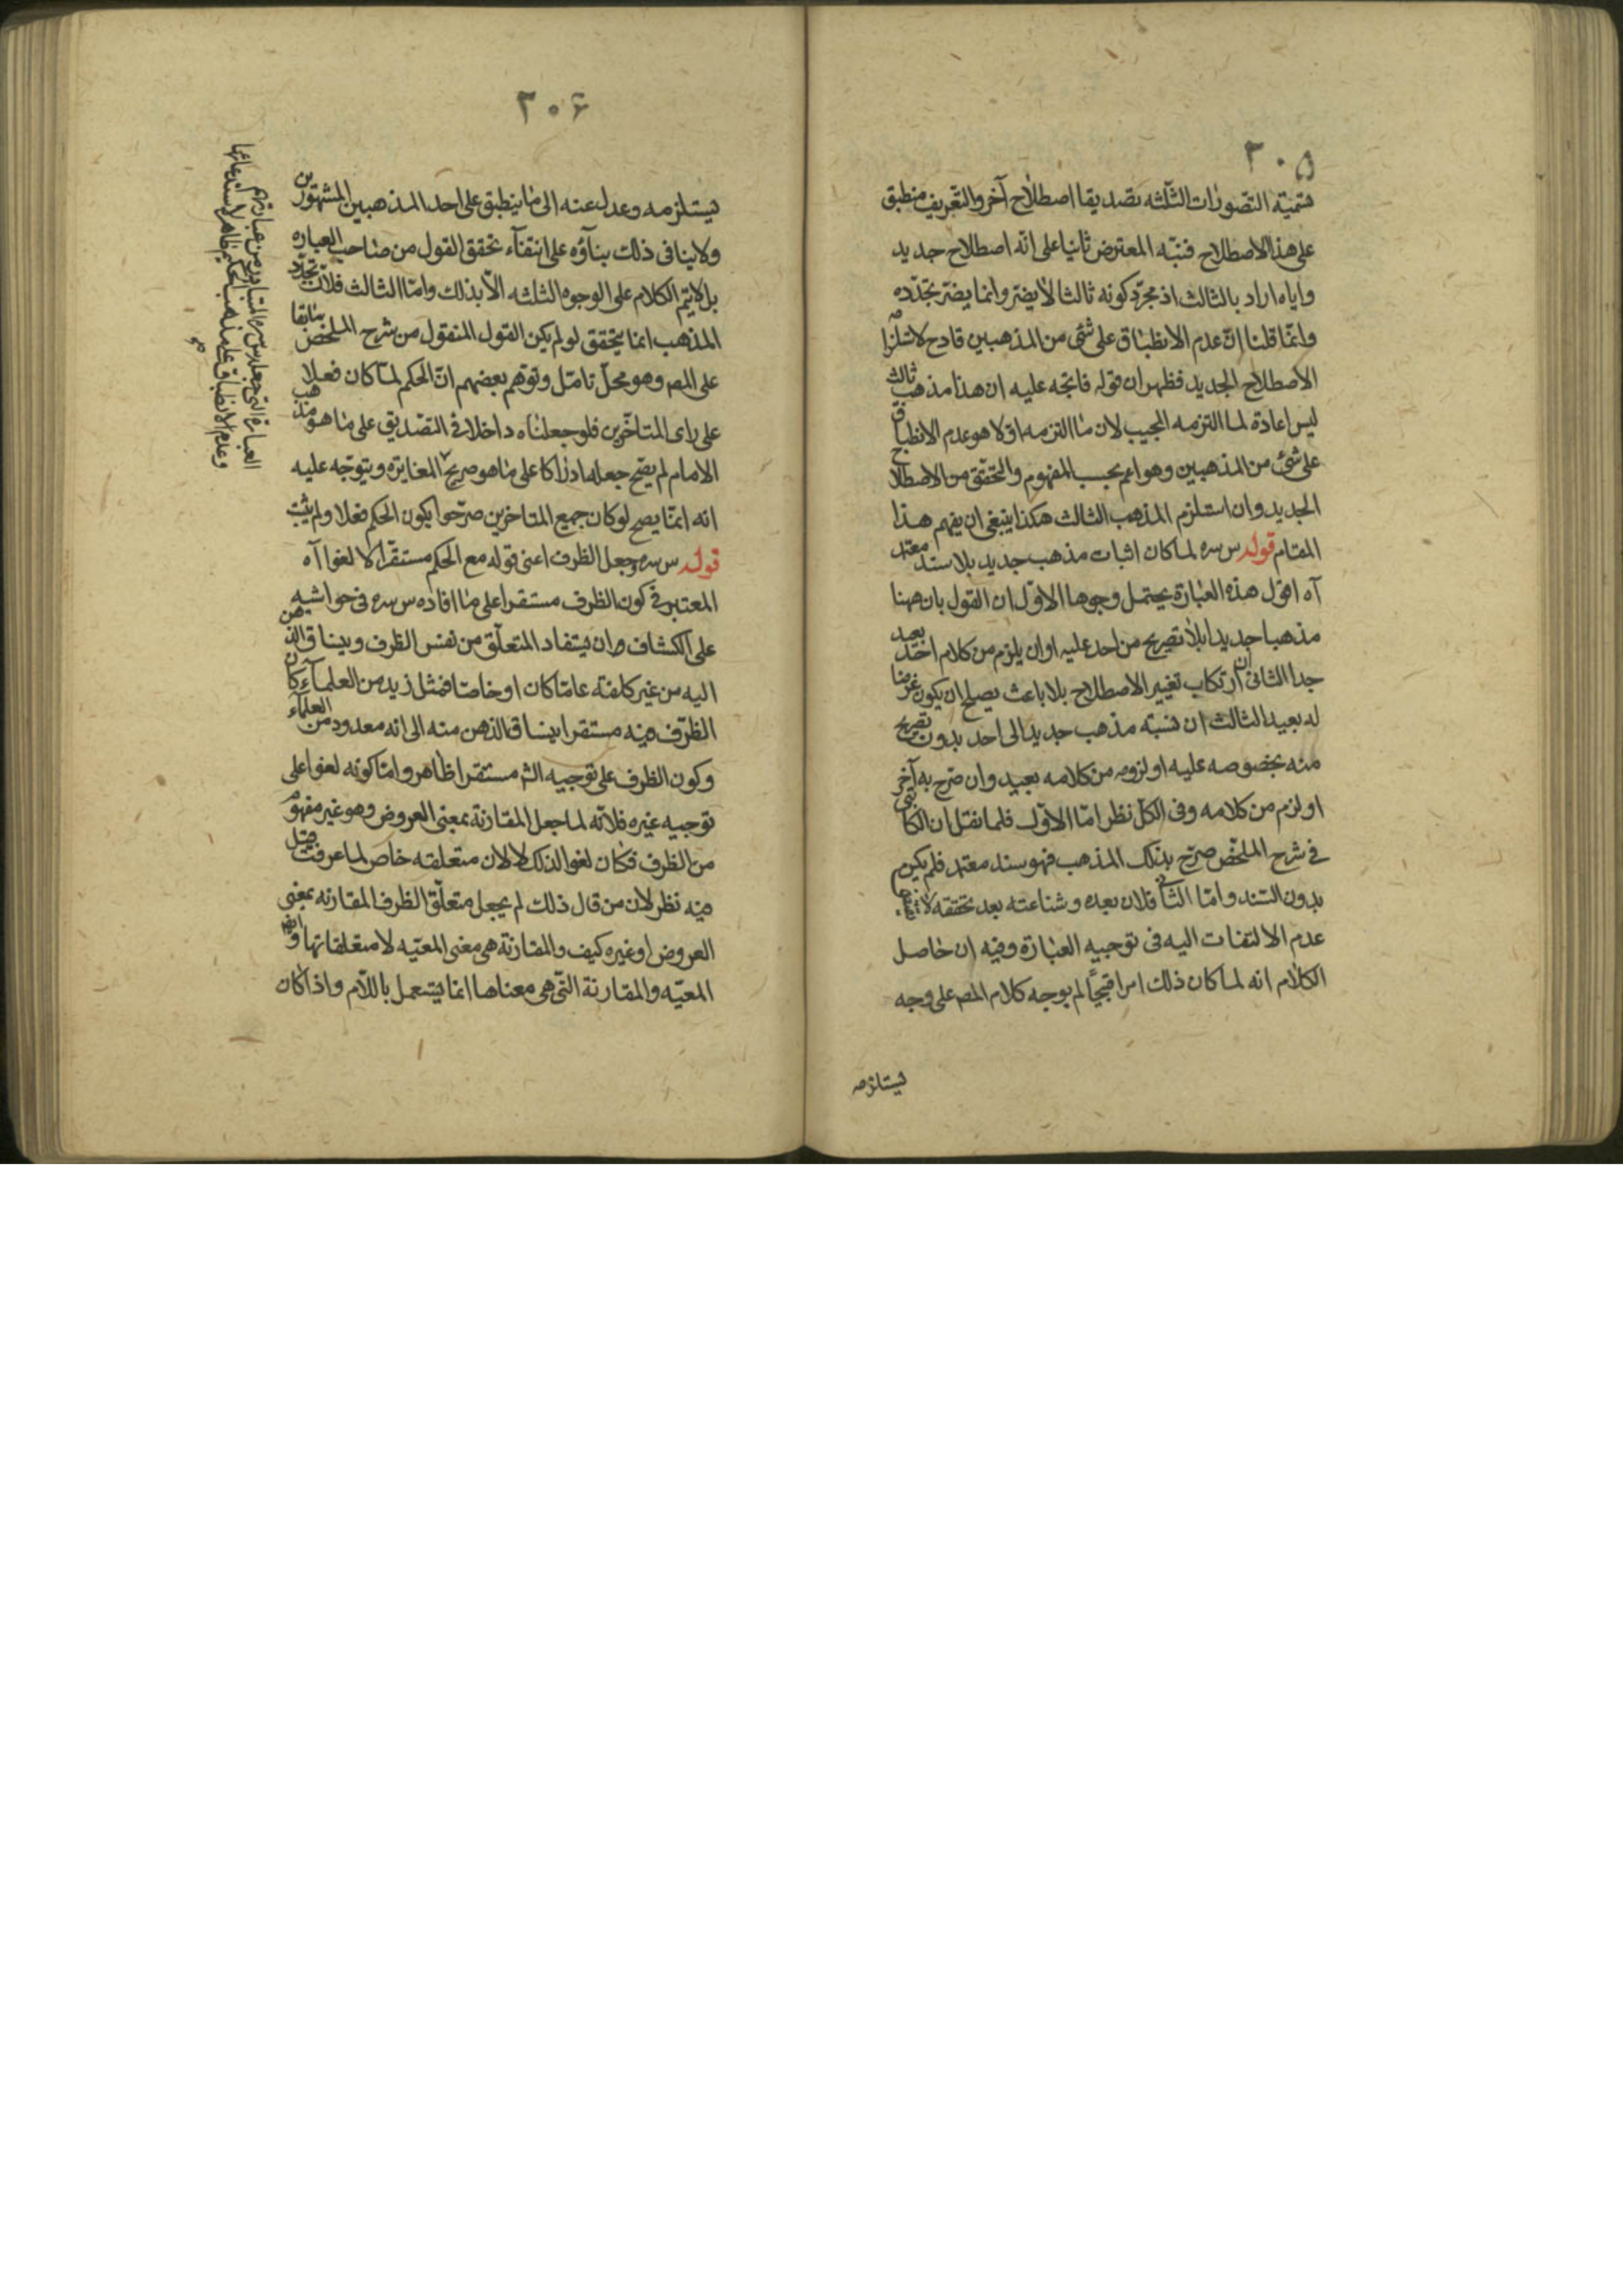 ٢٠۵
فتسمية التصورات الثلثه تصديقا اصطلاح آخر والتعريف منطبق
على هذا الاصطلاح فنبّه المعترض ثانيا على انّه اصطلاح جديد
واياه اراد بالثالث اذ مجرّد كونه ثالثا لا يضر وانما يضرّ تجدّده
وانّما قلنا انّ عدم الانطباق على شئ من المذهبين قادح لاستلزامه
الاصطلاح الجديد فظهر ان قوله فاتجه عليه ان هذا مذهب ثالث
ليس اعادة لما التزمه المجيب لان ما التزمه اوّلا هو عدم الانطباق
على شئ من المذهبين وهو اعم بحسب المفهوم والتحقّق من الاصطلاح
الجديد وان استلزم المذهب الثالث هكذا ينبغى ان يفهم هذا
المقام قوله س سره لما كان اثبات مذهب جديد بلا سند معتمد
آه اقول هذه العبارة يحتمل وجوها الاول ان القول بان ههنا
مذهبا جديدا بلا تصريح من احد عليه او ان يلزم من كلام احد بعيد
جدا الثانى ان ارتكاب تغيير الاصطلاح بلا باعث يصلح ان يكون غرضا
له بعيد الثالث ان نسبة مذهب جديد الى احد بدون تصريح
منه بخصوصه عليه او لزومه من كلامه بعيد وان صرّح به آخر
او لزم من كلامه وفى الكلّ نظر امّا الاوّل فلما نقل ان الكاتبى
فى شرح الملخّص صرّح بذلك المذهب فهو سند معتمد فلم يكن
بدون السند وامّا الثانى فلان بعده وشناعته بعد تحققه لا
عدم الالتفات اليه فى توجيه العبارة وفيه ان حاصل
الكلام انه لما كان ذلك امرا قبيحاً لم يوجه كلام المص على وجه
يستلزمه
٢٠۶
يستلزمه وعدل عنه الى ما ينطبق على احد المذهبين المشهورين
ولا ينافى ذلك بناؤه على انتفاء تحقق القول من صاحب العباره
بل لا يتم الكلام على الوجوه الثلثه الّا بذلك وامّا الثالث فلانّ تجدّد
المذهب انما يتحقق لو لم يكن القول المنقول من شرح الملخّص سابقا
على المص وهو محلّ تامّل وتوهّم بعضهم انّ الحكم لمّا كان فعلا
على راى المتاخّرين فلو جعلناه داخلا فى التصديق على ما هو مذهب
الامام لم يصحّ جعله ادراكا على ما هو صريح المغايره ويتوجّه عليه
انه انمّا يصح لو كان جميع المتاخرين صرّحوا بكون الحكم فعلا ولم يثبت
قوله س سره وجعل الظرف اعنى قوله مع الحكم مستقرّا لا لغوا آه
المعتبر فى كون الظرف مستقرا على ما افاده س سره فى حواشيه
على الكشاف ان يستفاد المتعلّق من نفس الظرف وينساق الذهن
اليه من غير كلفة عامّا كان او خاصّا فمثل زيد من العلماء كان
الظرف فيه مستقرا ينساق الذهن منه الى انه معدود من العلماء
وكون الظرف على توجيه الش مستقرا ظاهر وامّا كونه لغوا على
توجيه غيره فلانّه لما جعل المقارنة بمعنى العروض وهو غير مفهوم
من الظرف فكان لغوا لذلك لا لان متعلقه خاص لما عرفت قيل
فيه نظر لان من قال ذلك لم يجعل متعلّق الظرف المقارنه بمعنى
العروض او غيره كيف والمقارنة هى معنى المعيّه لا متعلقاتها وايض
المعيّه والمقارنة التى هى معناها انما يستعمل باللّام واذا كان